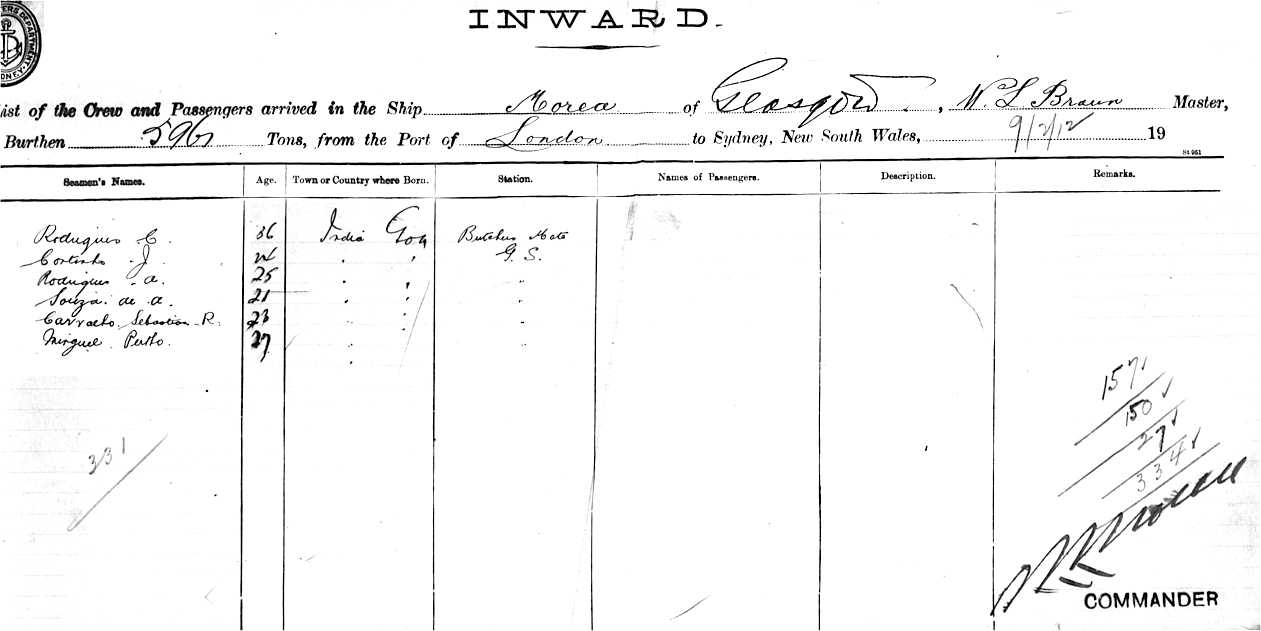 INWARD.
List of the Crew and Passengers arrived in the Ship Morea of Glasgow, W. L Braun Master,
Burthen 5961 Tons, from the Port of London to Sydney, New South Wales, 9/2/12 19
St 951
Seamen's Names. Age. Town or Country where Born. Station. Names of Passengers. Description. Remarks.
Rodrigues C. 36 India Goa Butchers Mate
Coutinho J. 24 " " G. S.
Rodrigues a. 25 " " "
Souza de a. 21 " " "
Carvalho Sebastian R. 23 " " "
Minguel Pedro. 27 " "
157
150
27
334
331
COMMANDER